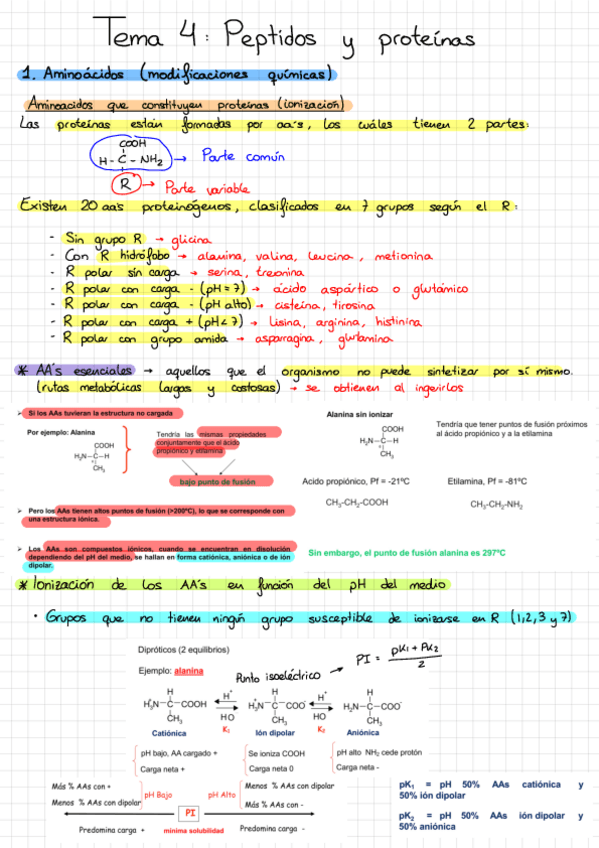 Tema 4: Peptidos y proteínas
1. Aminoácidos (modificaciones químicas)
Aminoacidos que constituyen proteinas (ionización)
Las proteínas están formadas por aa's, los cuáles tienen 2 partes:
COOH
H - C - NH₂ → Parte común
R → Parte variable
Existen 20 aa's proteinógenos, clasificados en 7 grupos según el R:
- Sin grupo R → glicina
- Con R hidrófobo → alanina, valina, leucina, metionina
- R polar sin carga → serina, treonina
- R polar con carga - (pH = 7) → ácido aspártico o glutámico
- R polar con carga - (pH alto) → cisteína, tirosina
- R polar con carga + (pH < 7) → lisina, arginina, histinina
- R polar con grupo amida → asparragina, glutamina
* AA's esenciales → aquellos que el organismo no puede sintetizar por sí mismo.
(rutas metabólicas largas y costosas) → se obtienen al ingerirlos
➢ Si los AAs tuvieran la estructura no cargada
Por ejemplo: Alanina
COOH
H₂N–C–H
CH₃
Tendría las mismas propiedades
conjuntamente que el ácido
propiónico y etilamina
bajo punto de fusión
Alanina sin ionizar
COOH
H₂N–C–H
CH₃
Tendría que tener puntos de fusión próximos
al ácido propiónico y a la etilamina
Acido propiónico, Pf = -21ºC
Etilamina, Pf = -81ºC
CH₃-CH₂-COOH
CH₃-CH₂-NH₂
➢ Pero los AAs tienen altos puntos de fusión (>200ºC), lo que se corresponde con
una estructura iónica.
➢ Los AAs son compuestos iónicos, cuando se encuentran en disolución
dependiendo del pH del medio, se hallan en forma catiónica, aniónica o de ión
dipolar.
Sin embargo, el punto de fusión alanina es 297ºC
* Ionización de los AA's en función del pH del medio
• Grupos que no tienen ningún grupo susceptible de ionizarse en R (1,2,3 y 7)
Dipróticos (2 equilibrios)
Ejemplo: alanina
Punto isoeléctrico → PI = pK1 + PK2 / 2
H
H₃⁺N–C–COOH
CH₃
H⁺
HO
K₁
H
H₃⁺N–C–COO⁻
CH₃
H⁺
HO
K₂
H
H₂N–C–COO⁻
CH₃
Catiónica
Ión dipolar
Aniónica
pH bajo, AA cargado +
Carga neta +
Se ioniza COOH
Carga neta 0
pH alto NH₂ cede protón
Carga neta -
Más % AAs con +
Menos % AAs con dipolar
pH Bajo
pH Alto
Menos % AAs con dipolar
Más % AAs con -
PI
Predomina carga +
mínima solubilidad
Predomina carga -
pK₁ = pH 50% AAs catiónica y
50% ión dipolar
pK₂ = pH 50% AAs ión dipolar y
50% aniónica